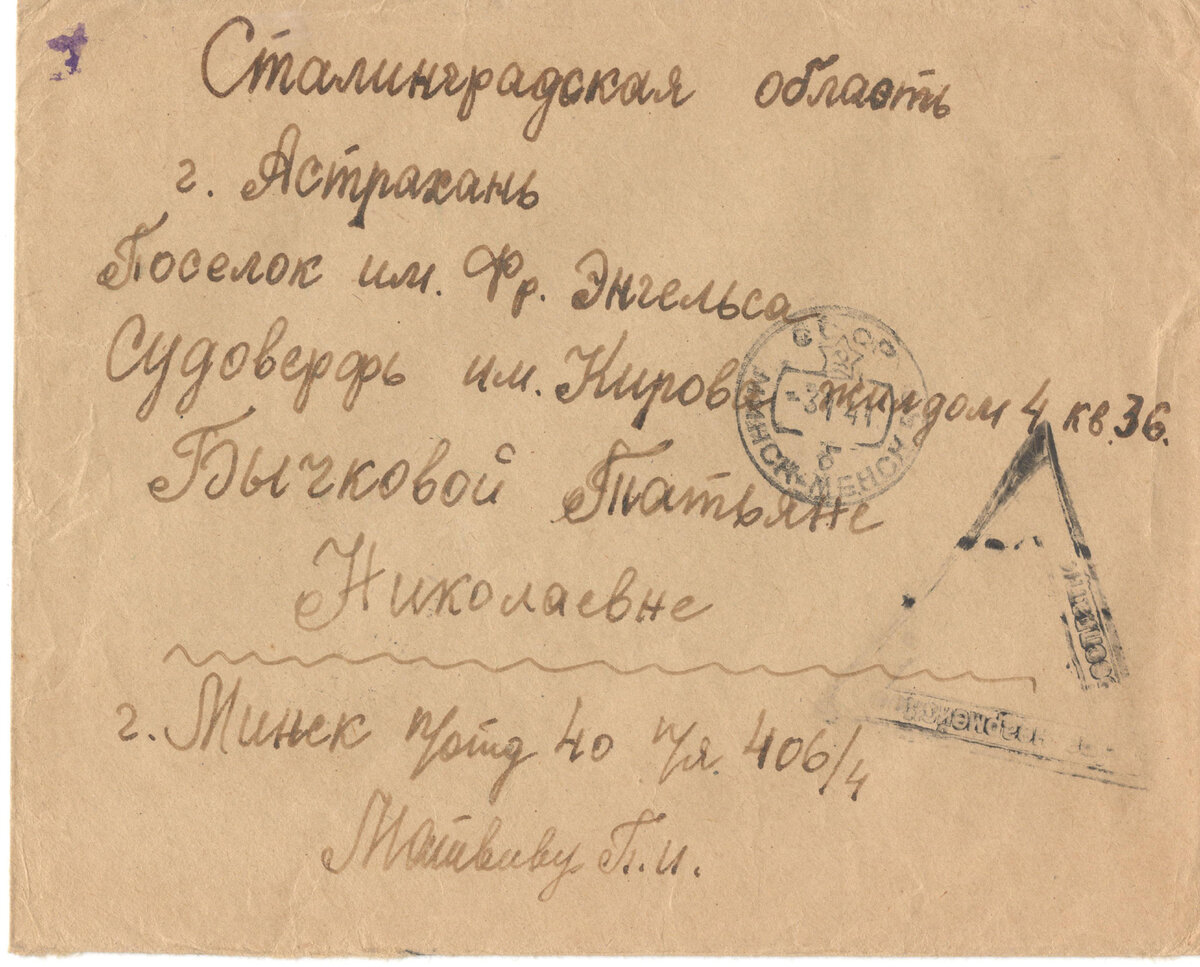 Сталинградская область
г. Астрахань
Поселок им. Фр. Энгельса
Судоверфь им. Кирова жилдом 4 кв. 36.
Бычковой Татьяне
Николаевне
г. Минск п/отд 40 п/я. 406/4
Матвееву П. И.